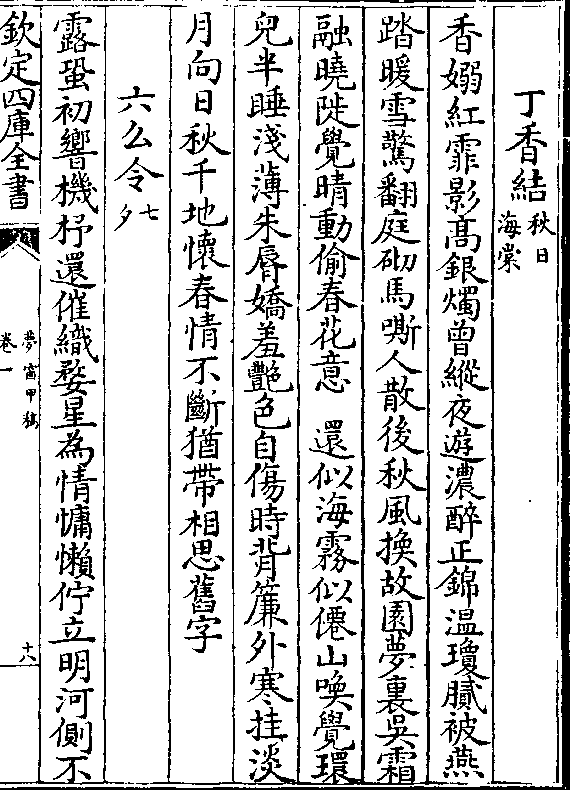 丁香結秋日海棠
香嫋紅霏影髙銀燭曾縱夜遊濃醉正錦温瓊膩被燕
踏暖雪驚翻庭砌馬嘶人散後秋風換故園夢裏吳霜
融曉陡覺晴動偷春花意　還似海霧似僊山喚覺環
兒半睡淺薄朱脣嬌羞艷色自傷時背簾外寒挂淡
月向日秋千地懷春情不斷猶帶相思舊字
六么令七夕
露蛩初響機杼還催織婺星為情慵懶佇立明河側不
欽定四庫全書
夢窗甲稿
卷一
十八